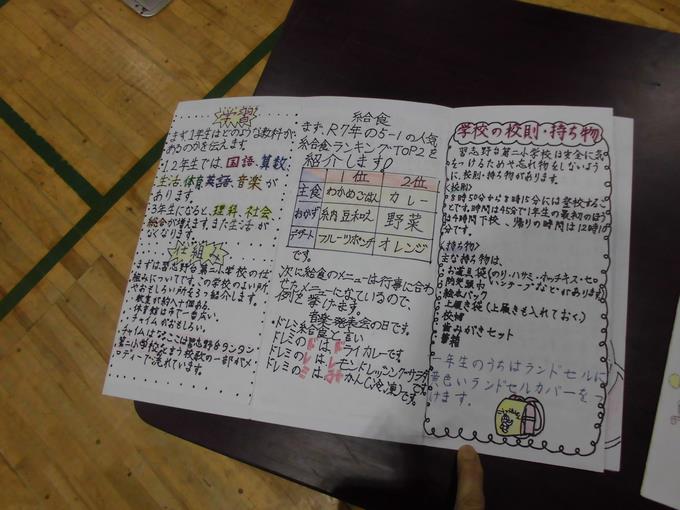 学習
まず1年生はどのような教科が
あるのかを伝えます。
1,2年生では、国語、算数、
生活、体育、英語、音楽が
あります。
3年生になると、理科、社会
総合が増えます。また生活が
なくなります。
仕組み
まずは習志野台第二小学校の仕
組みについてです。この学校のよい所
やおもしろい所を3つ紹介します。
・教室が約八十個ある。
・体育館は千で一番広い。
・チャイムがおもしろい。
チャイムはなな
第二小学校
ロディーで流れています。
給食
まず、R7年の5-1の人気
給食ランキング・TOP2を
紹介します。
1位 2位
主食 わかめごはん カレー
おかず 納豆和え 野菜
デザート フルーツポンチ オレンジ
です。
次に給食のメニューは行事に合わ
せたメニューになっているので、
例を挙げます。
音楽発表会の日です。
・ドレミ給食と言い
ドレミのドはドライカレーです。
ドレミのレはレモンドレッシングサラダ
ドレミのミはみかん(冷凍)です。
学校の校則・持ち物
習志野台第二小学校は安全に気
をつけるためや忘れ物をしないよう
に、校則・持ち物があります。
〈校則〉
8時50分から8時15分には登校するこ
とです。時間は45分で1年生の最初のほう
は4時間下校、帰りの時間は12時1
分です。
〈持ち物〉
主な持ち物は、
・お道具袋(のり・ハサミ・ホッチキス・セロ
・防災頭巾
・絵本バック
・上履き袋(上履きも入れておく。)
・校帽
・歯みがきセット
・書箱
一年生のうちはランドセルに
黄色いランドセルカバーをつ
けます。